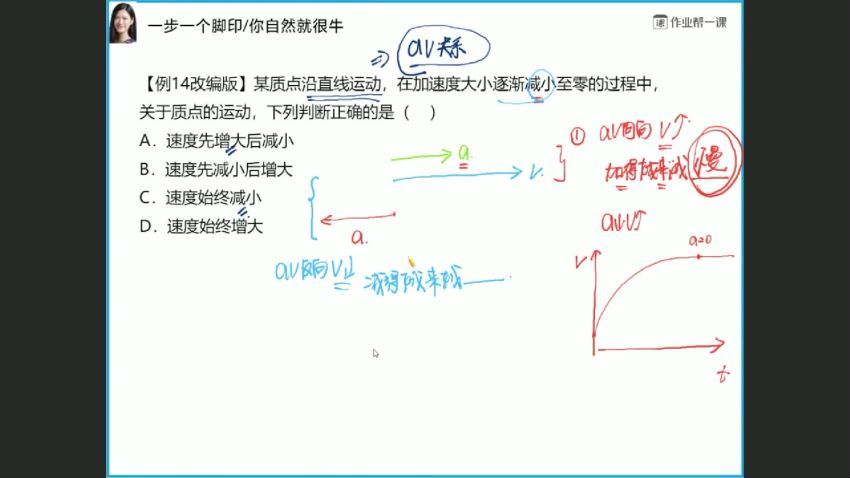 一步一个脚印/你自然就很牛
作业帮一课
⇒ av关系
【例14改编版】某质点沿直线运动，在加速度大小逐渐减小至零的过程中，
关于质点的运动，下列判断正确的是（ ）
A. 速度先增大后减小
B. 速度先减小后增大
C. 速度始终减小
D. 速度始终增大
a.
v.
a.
① av同向 v↑
加得越来越慢
a↓v↑
av反向v↓ 减得越来越
a=0
v
t